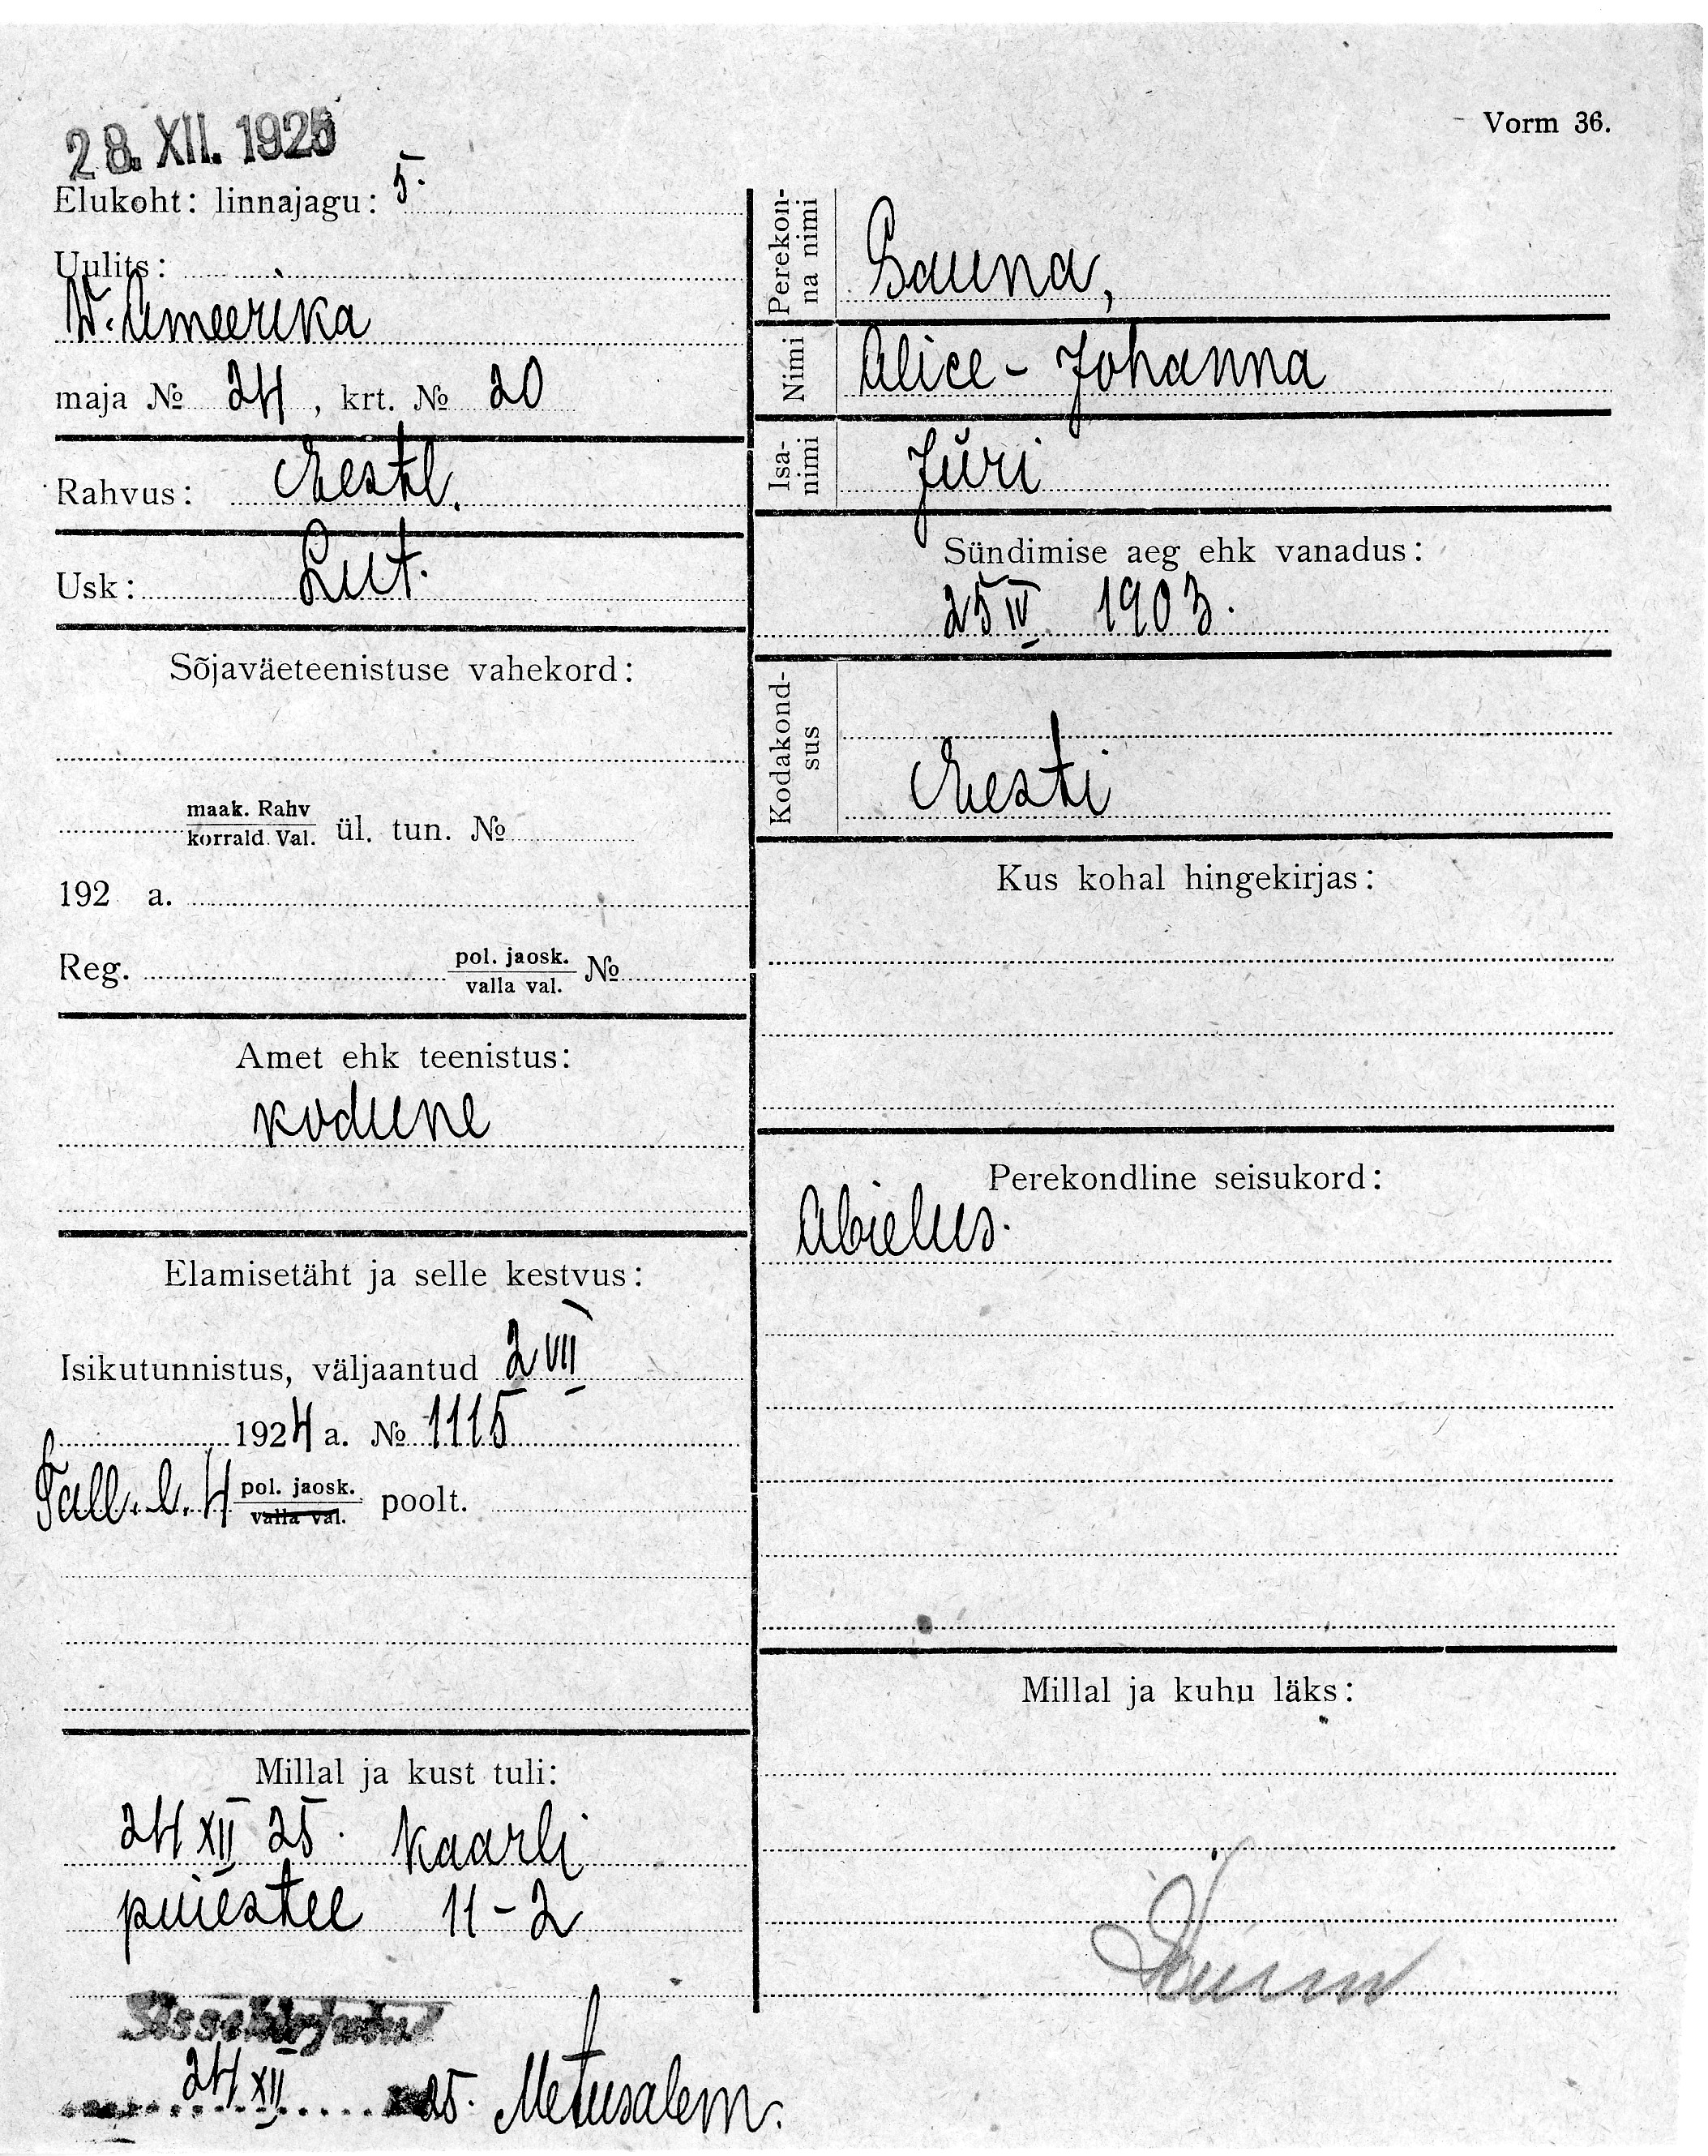 28. XII. 1925
Vorm 36.
Elukoht: linnajagu: 5.
Uulits:
W. Ameerika
maja № 24, krt. № 20
Rahvus: Eestl.
Usk: Lut.
Sõjaväeteenistuse vahekord:
maak. Rahv
korrald. Val. ül. tun. №
192 a.
Reg. pol. jaosk. №
valla val.
Amet ehk teenistus:
kodune
Elamisetäht ja selle kestvus:
Isikutunnistus, väljaantud 2 VII
1924 a. № 1115
Tall. l. 4 pol. jaosk. poolt.
valla val.
Millal ja kust tuli:
24 XII 25. Kaarli
puiestee 11-2
Sissekirjutud
24 XII 25. Metusalem.
Perekon-
na nimi
Sauna,
Nimi Alice-Johanna
Isa-
nimi
Jüri
Sündimise aeg ehk vanadus:
25 IV 1903.
Kodakond-
sus
Eesti
Kus kohal hingekirjas:
Perekondline seisukord:
Abielus.
Millal ja kuhu läks: